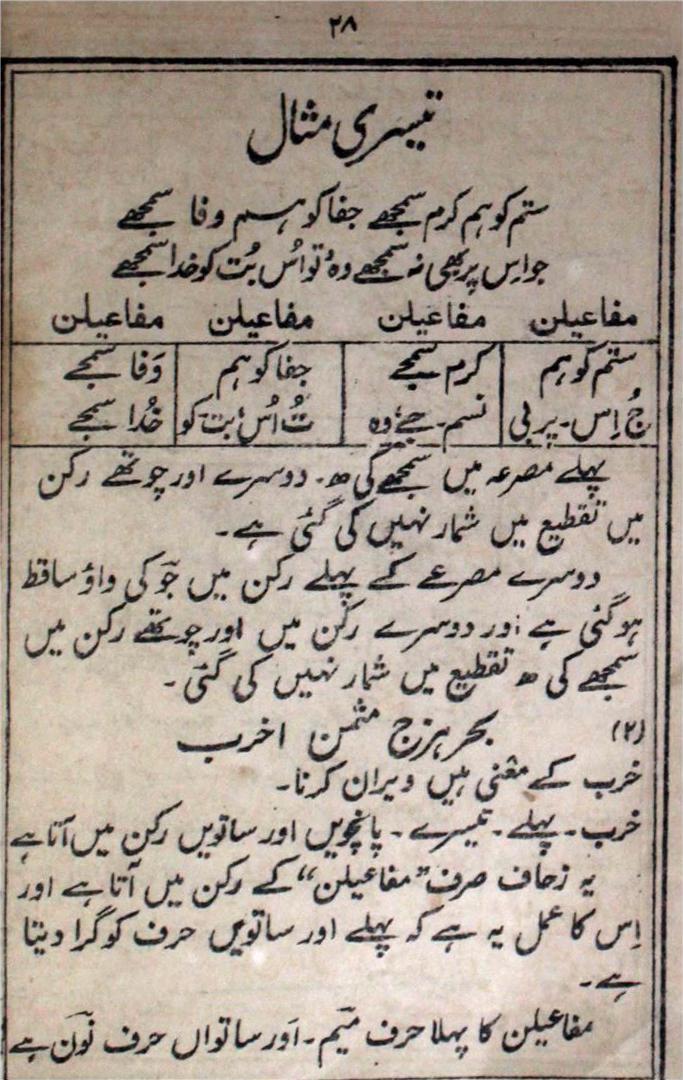 ۲۸
تیسری مثال
ستم کو ہم کرم سمجھے جفا کو ہم وفا سمجھے
جو اِس پر بھی نہ سمجھے وہ تو اُس بُت کو خدا سمجھے
مفاعیلن مفاعیلن مفاعیلن مفاعیلن
ستم کو ہم کرم سمجے جفا کو ہم وَفا سمجے
جُ اِس۔ پر بی نسم۔ جے وہ تُ اُس بت کو خُدا سمجے
پہلے مصرعہ میں سمجھے کی ھ۔ دوسرے اور چوتھے رکن
میں تقطیع میں شمار نہیں کی گئی ہے۔
دوسرے مصرعے کے پہلے رکن میں جو کی واؤ ساقط
ہوگئی ہے اور دوسرے رکن میں اور چوتھے رکن میں
سمجھے کی ھ تقطیع میں شمار نہیں کی گئی۔
(۲) بحر ہزج مثمن اخرب
خرب کے معنی ہیں ویران کرنا۔
خرب۔ پہلے۔ تیسرے۔ پانچویں اور ساتویں رکن میں آتا ہے
یہ زحاف صرف "مفاعیلن" کے رکن میں آتا ہے اور
اِس کا عمل یہ ہے کہ پہلے اور ساتویں حرف کو گرا دیتا
ہے۔
مفاعیلن کا پہلا حرف میم۔ اور ساتواں حرف نون ہے